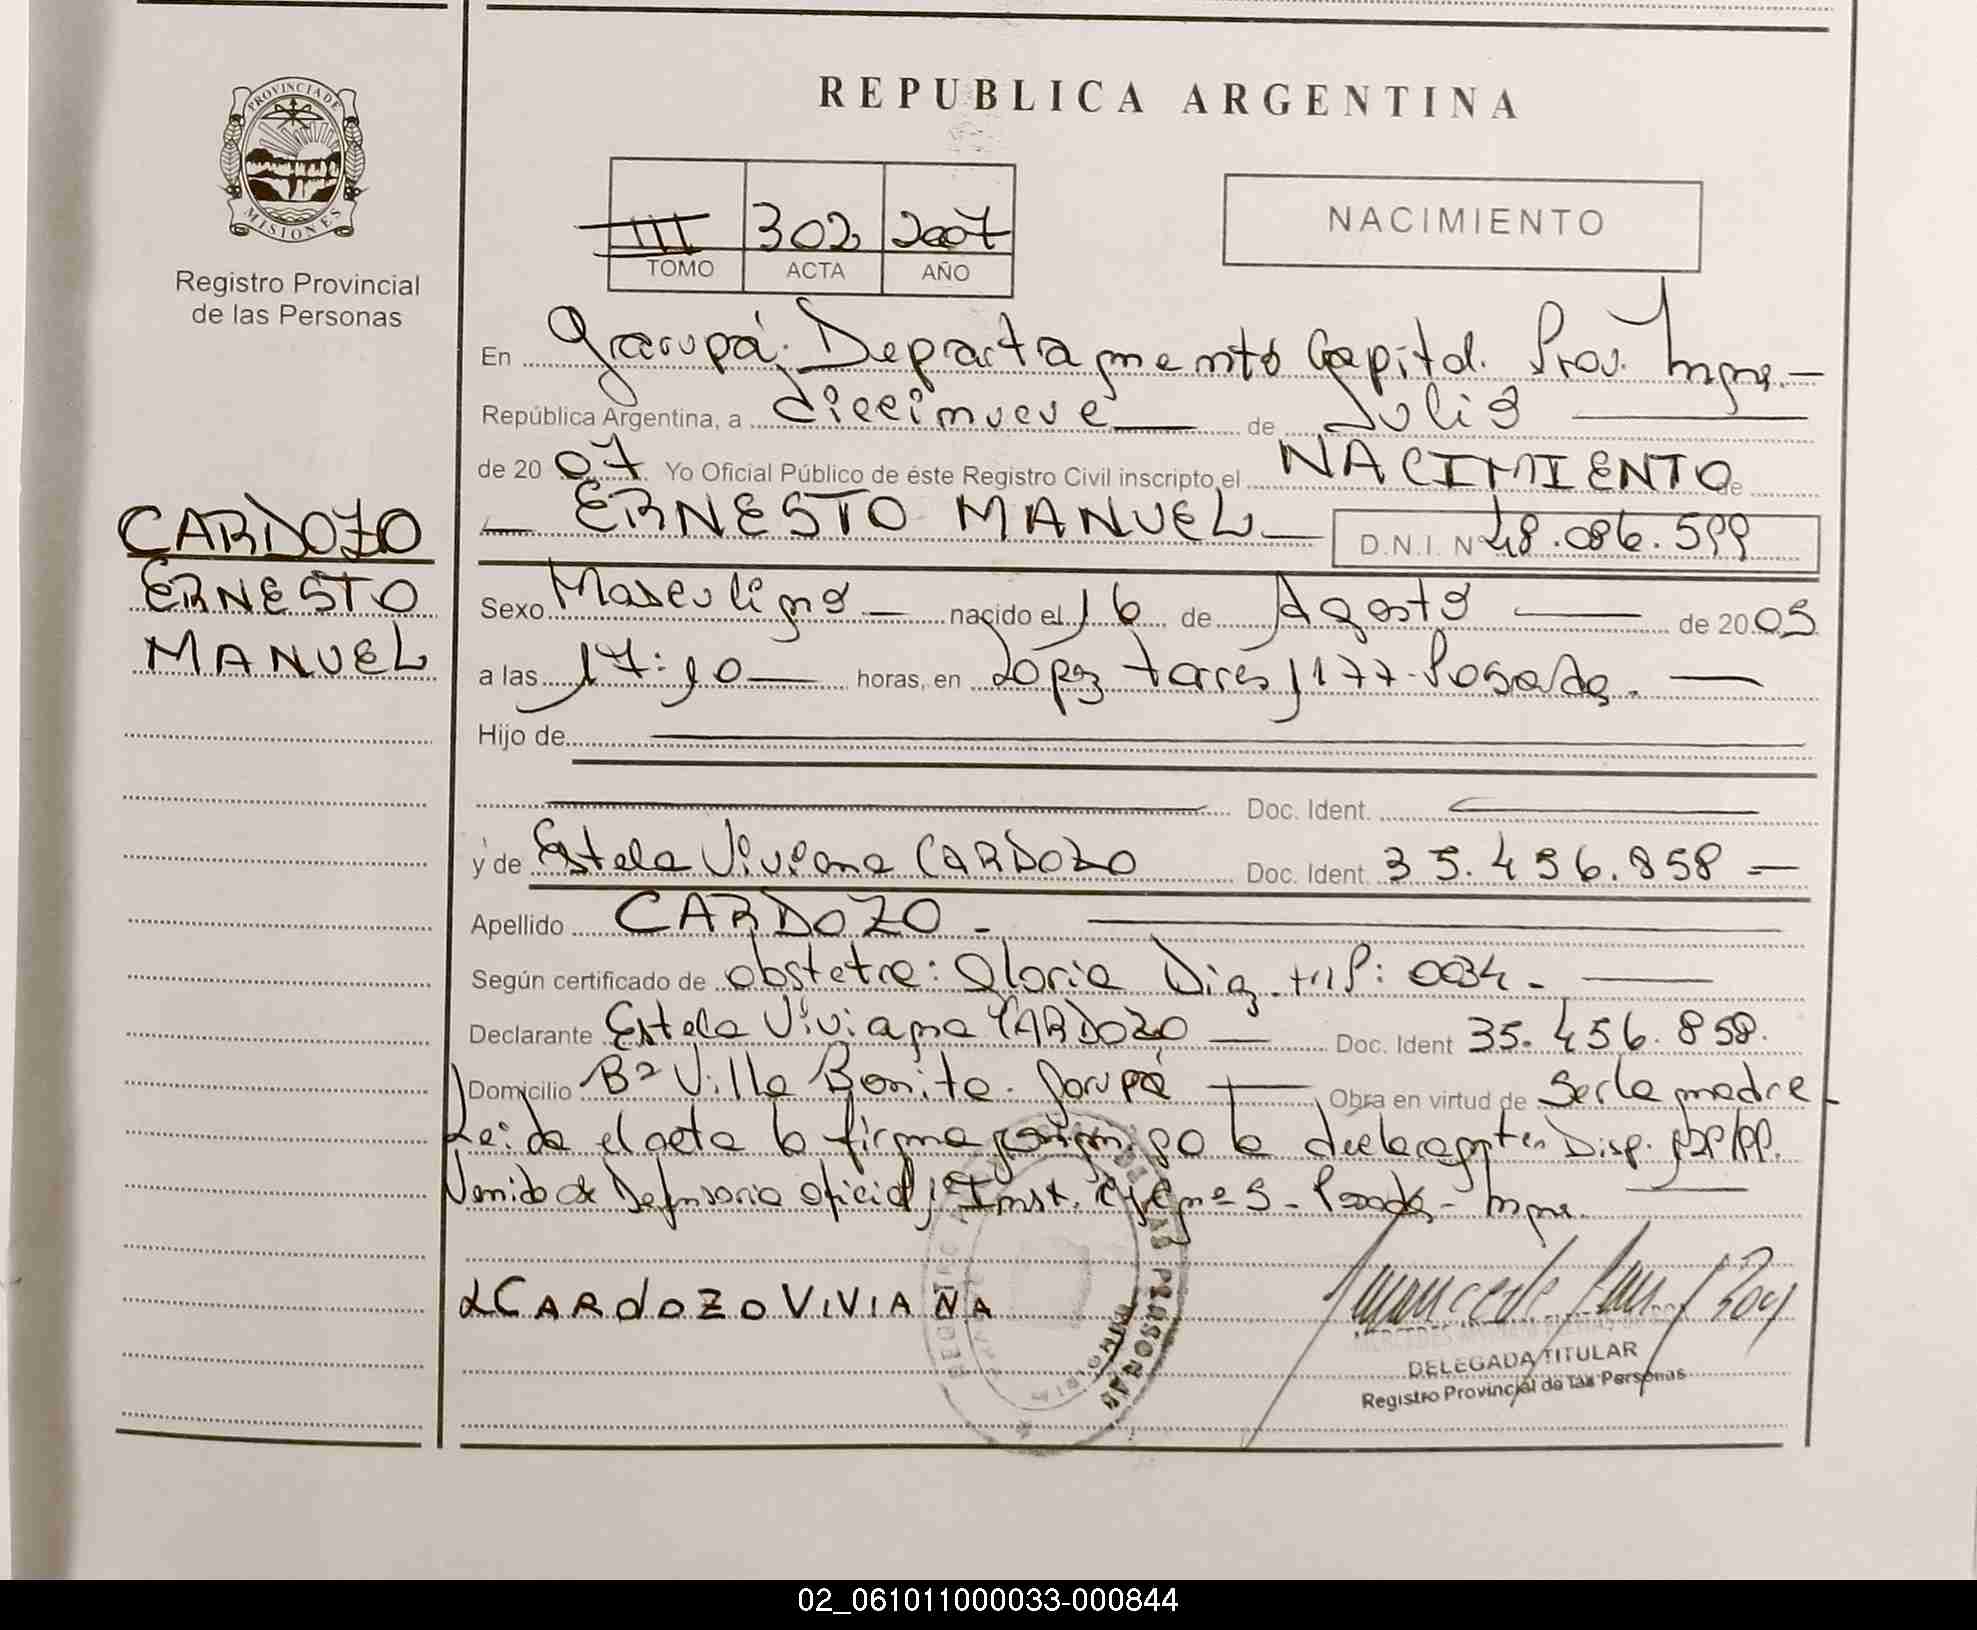 REPUBLICA ARGENTINA
PROVINCIA DE MISIONES
Registro Provincial
de las Personas
III 302 2007
TOMO ACTA AÑO
NACIMIENTO
En Garupá. Departamento Capital. Prov. Mnes.-
República Argentina, a diecinueve de Julio
de 2007. Yo Oficial Público de éste Registro Civil inscripto el NACIMIENTO de
ERNESTO MANUEL D.N.I. Nº 48.086.599
CARDOZO
ERNESTO
MANUEL
Sexo Masculino nacido el 16 de Agosto de 2005
a las 17:10 horas, en López Torres 1177-Posadas.
Hijo de
Doc. Ident.
y de Estela Viviana CARDOZO Doc. Ident. 35.456.858
Apellido CARDOZO -
Según certificado de obstetra: Gloria Diaz. M.P: 0034.
Declarante Estela Viviana CARDOZO Doc. Ident 35.456.858.
Domicilio Bº Villa Bonita. Garupá Obra en virtud de Ser la madre
Leída el acta la firma conmigo la declarante. Disp.
Venido de Defensoria oficial, Inst. Nº 5- Posadas- Mnes.
CARDOZO VIVIANA
DELEGADA TITULAR
Registro Provincial de las Personas
02_061011000033-000844